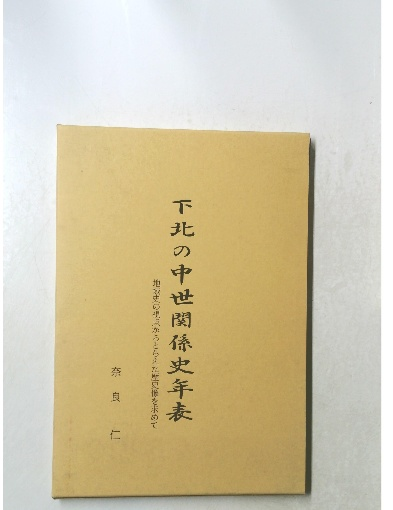 下北の中世関係史年表
地域史の視点からとらえた歴史像を求めて
奈良仁